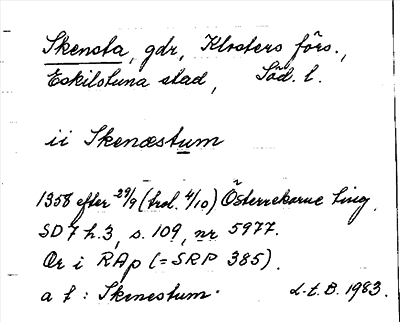 Skensta, gdr, Klosters förs.,
Eskilstuna stad, Söd. l.
ii Skenæstum
1358 efter 29/9 (trol. 4/10) Österrekarne ting.
SD 7 h. 3, s. 109, nr 5977.
Or i RAp (= SRP 385).
a t : Skenestum.
L-t. B. 1983.